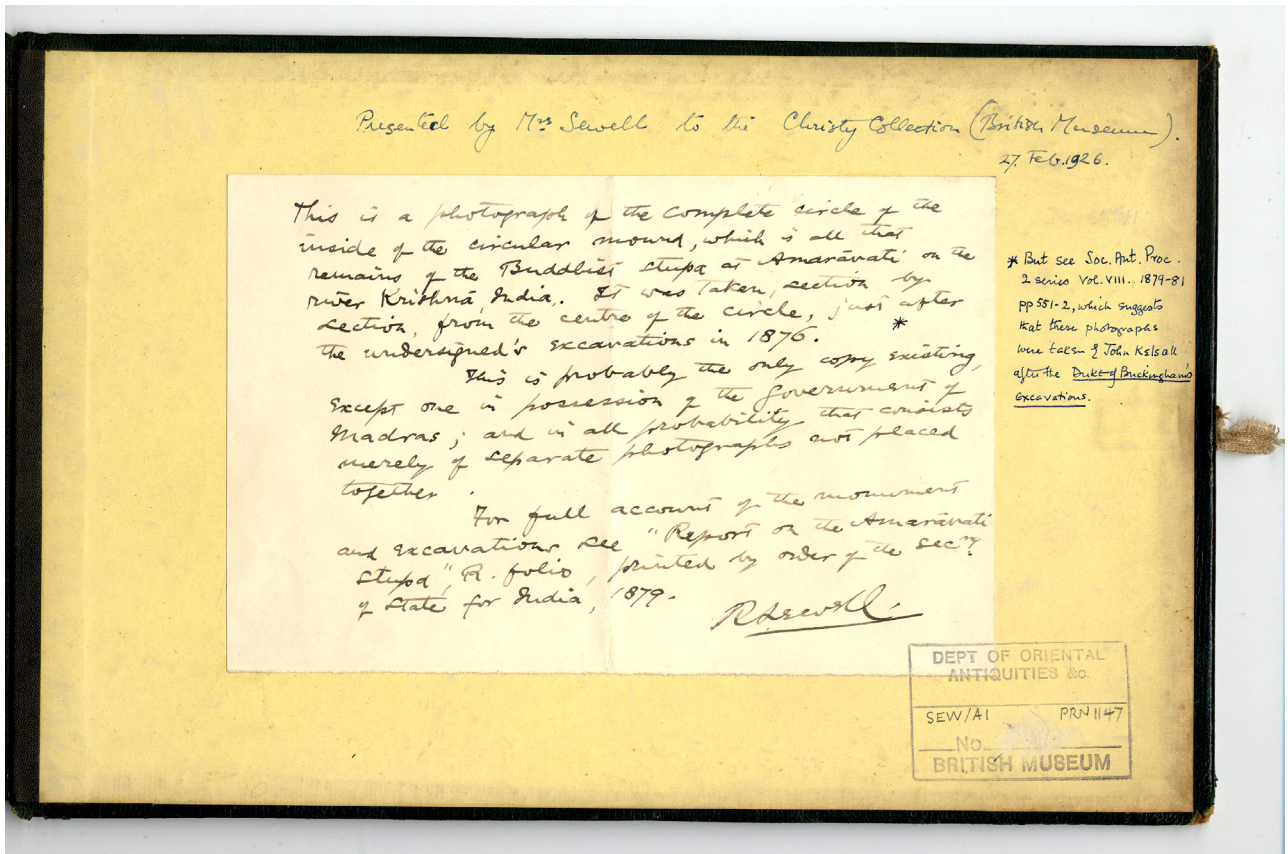 Presented by Mrs Sewell to the Christy Collection (British Museum).
27. Feb. 1926.
This is a photograph of the complete circle of the
inside of the circular mound, which is all that
remains of the Buddhist stupa at Amarāvatī on the
river Krishnā, India. It was taken, section by
section, from the centre of the circle, just after
the undersigned's excavations in 1876. *
This is probably the only copy existing,
except one in possession of the Government of
Madras; and in all probability that consists
merely of separate photographs not placed
together.
For full account of the monument
and excavations see "Report on the Amarāvatī
stupa", R. folio, printed by order of the Secry.
of State for India, 1879.
R Sewell.
* But see Soc. Ant. Proc.
2 series Vol. VIII., 1879-81
pp 551-2, which suggests
that these photographs
were taken by John Kelsall
after the Duke of Buckingham's
excavations.
DEPT OF ORIENTAL
ANTIQUITIES &c.
SEW/A1 PRN 1147
No.
BRITISH MUSEUM